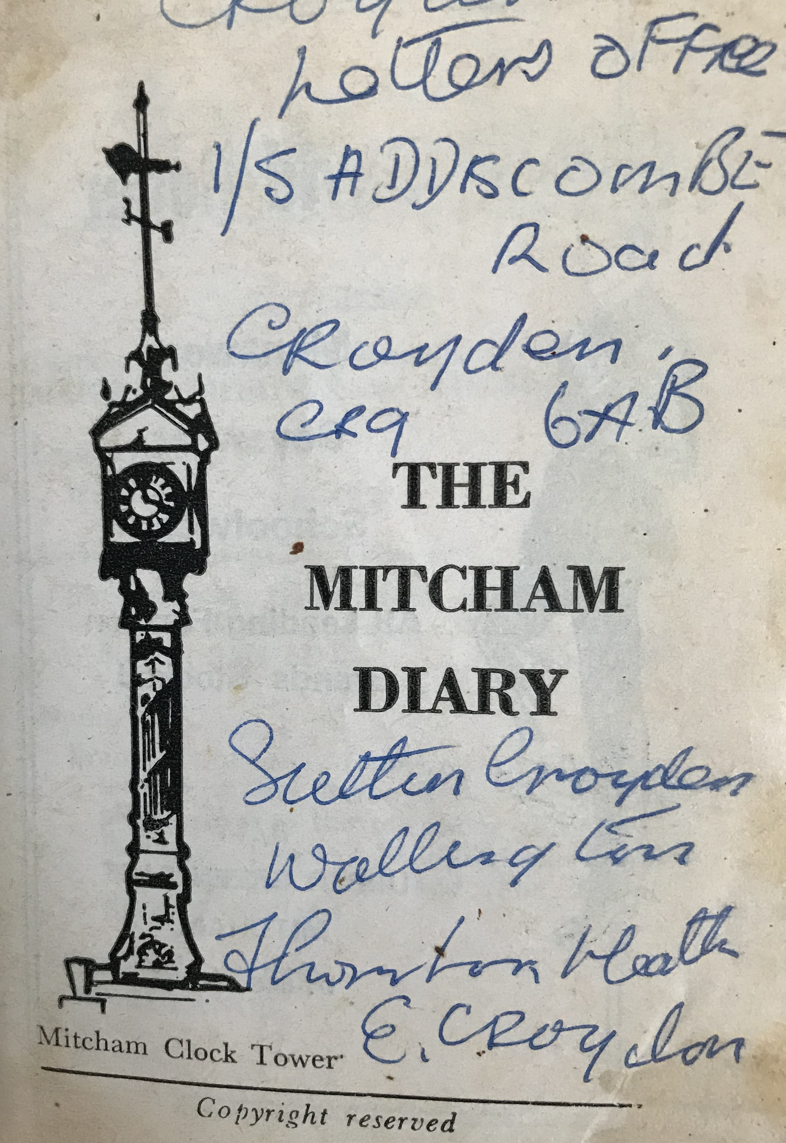 Croydon
Letters office
1/5 ADDISCOMBE
Road
Croyden.
CR9 6AB
THE
MITCHAM
DIARY
Sutton Croydon
Wallington
Thornton Heath
E. CROydon
Mitcham Clock Tower
Copyright reserved